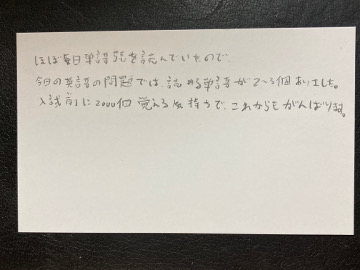 ほぼ毎日単語張を読んでいたので、
今日の英語の問題では、読める単語が2〜3個ありました。
入試前に2000個覚える気持ちで、これからもがんばります。